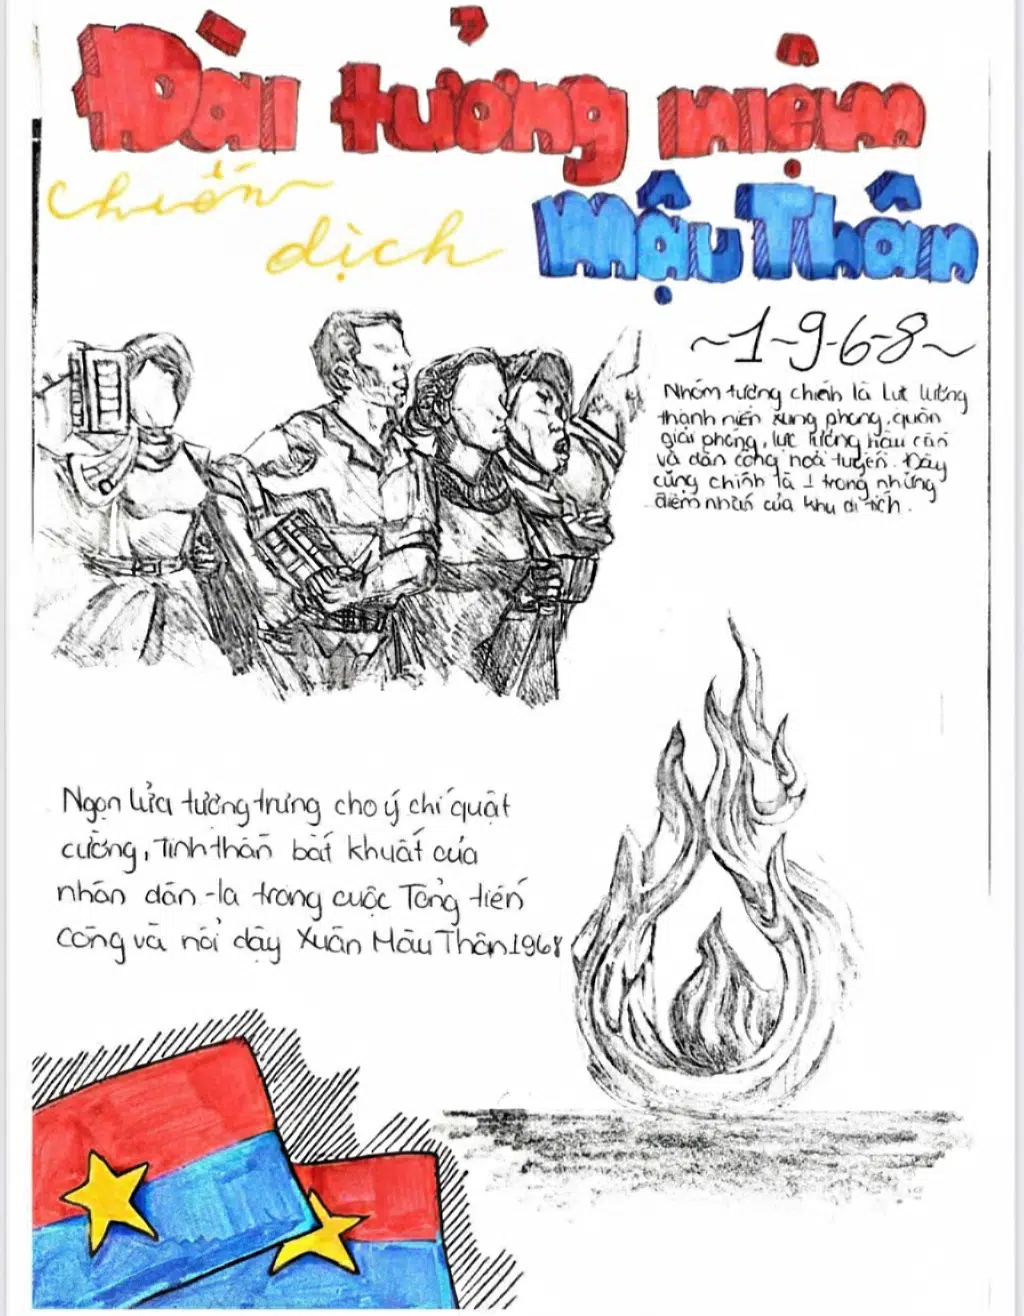 Đài tưởng niệm
chiến
dịch
Mậu Thân
~1-9-6-8~
Nhóm tượng chính là lực lượng
thanh niên xung phong, quân
giải phóng, lực lượng hậu cần
và dân công hoả tuyến. Đây
cũng chính là 1 trong những
điểm nhấn của khu di tích.
Ngọn lửa tượng trưng cho ý chí quật
cường, tinh thần bất khuất của
nhân dân ta trong cuộc Tổng tiến
công và nổi dậy Xuân Mậu Thân 1968